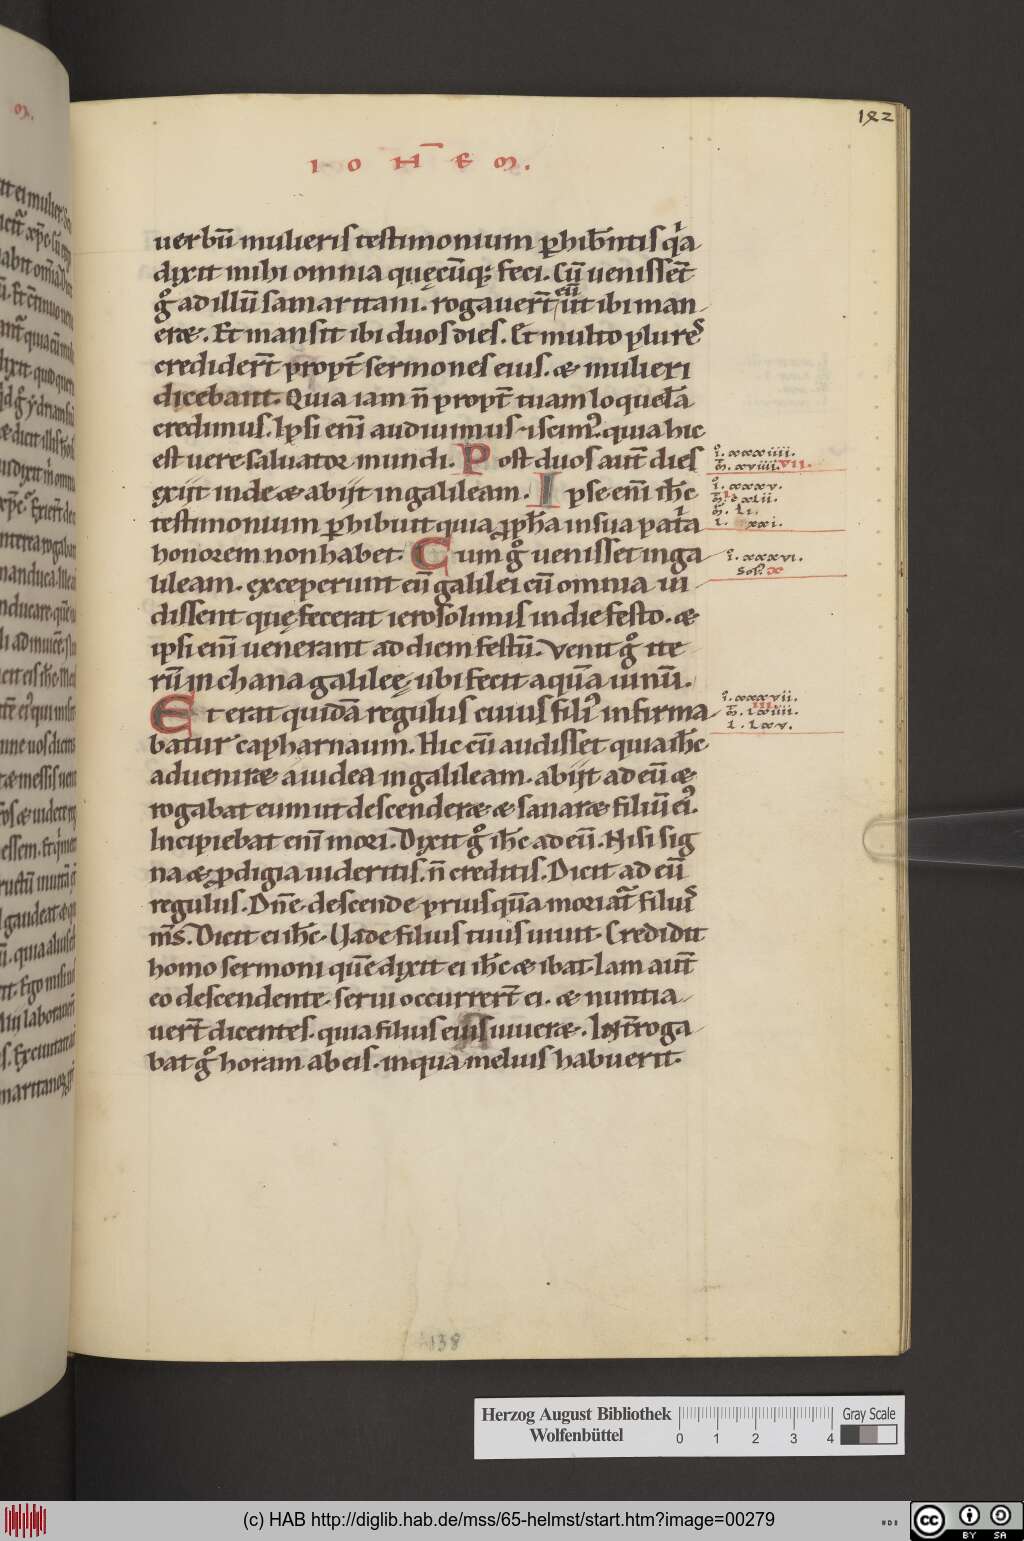 192
IOH̅EM.
uerbū mulieris testimonium ꝑhib̄ntis qͥa
dixit mihi omnia quęcūq; feci. Cū uenisset̄
gͦ ad illū samaritani. rogauert̄ eū ut ibi man
eræ. Et mansit ibi duos dies. Et multo plures
crediderт̄ propt̄ sermones eius. æ mulieri
dicebant. Quia iam n̄ propt̄ tuam loquelā
credimus. Ipsi enī audiuimus ⁊ scimꝰ. quia hic
est uere saluator mundi. Post duos aut̄ dies
exiit inde æ abiit in galileam. Ipse enī ih̄c
testimonium ꝑhibuit quia ꝓph̄a in sua pat̄a
honorem non habet. Cum gͦ uenisset in ga
lileam. exceperunt eū galilei cū omnia ui
dissent quę fecerat ierosolimis in die festo. æ
ipsi enī uenerant ad diem festū. Venit gͦ ite
rū in chana galileę. ubi fecit aquā uinū.
Et erat quidā regulus cuius filiꝰ infirma
batur capharnaum. Hic cū audisset quia ih̄c
adueniræ a iudea in galileam. abiit ad eū æ
rogabat eum ut descenderæ æ sanaræ filiū eiꝰ.
Incipiebat enī mori. Dixit gͦ ih̄c ad eū. Nisi sig
na æ ꝓdigia uideritis. n̄ creditis. Dicit ad eū
regulus. Dn̄e descende priusquā moriat̄ filius
m̄s. Dicit ei ih̄c. Uade filius tuus uiuit. Credidit
homo sermoni quē dixit ei ih̄c æ ibat. Iam aut̄
eo descendente. serui occurrert̄ ei. æ nuntia
uert̄ dicentes. quia filius eius uiueræ. Int̄roga
bat gͦ horam ab eis. in qua melius habuerit.
i. xxxiiii.
m̄. xviii. VII.
i. xxxv.
m̄. cxlii.
m̄. li.
l. xxi.
i. xxxvi.
Sol. x
i. xxxvii.
m̄. lxiiii.
l. lxv.
138
Herzog August Bibliothek
Wolfenbüttel
0 1 2 3 4
Gray Scale
(c) HAB http://diglib.hab.de/mss/65-helmst/start.htm?image=00279
cc BY SA